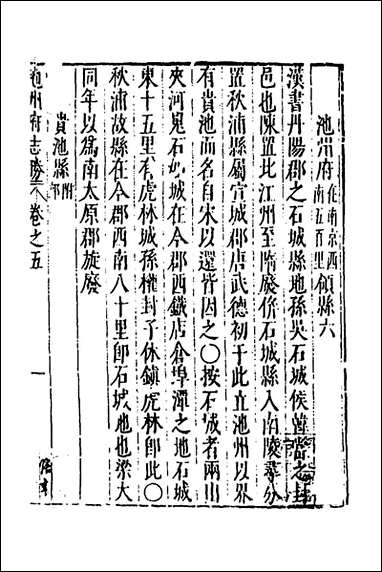 池州府在南京西南五百里領縣六
漢書丹陽郡之石城縣地孫吳石城侯韓當之封
邑也陳置北江州至隋廢併石城縣入南陵尋分
置秋浦縣屬宣城郡唐武德初于此立池州以界
有貴池而名自宋以還皆因之〇按石城者兩山
夾河鬼石如城在今郡西鐵店倉埠潭之地石城
東十五里有虎林城孫權封子休鎮虎林即此〇
秋浦故縣在今郡西南八十里即石城地也梁大
同年以為南太原郡旋廢
貴池縣附郭
池州府志勝 卷之五 一